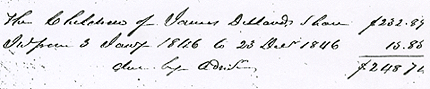 The Children of James Dillards Share $232.89
Int from 3 Jany 1846 to 23 Decr 1846 15.85
due by Admr $248.74